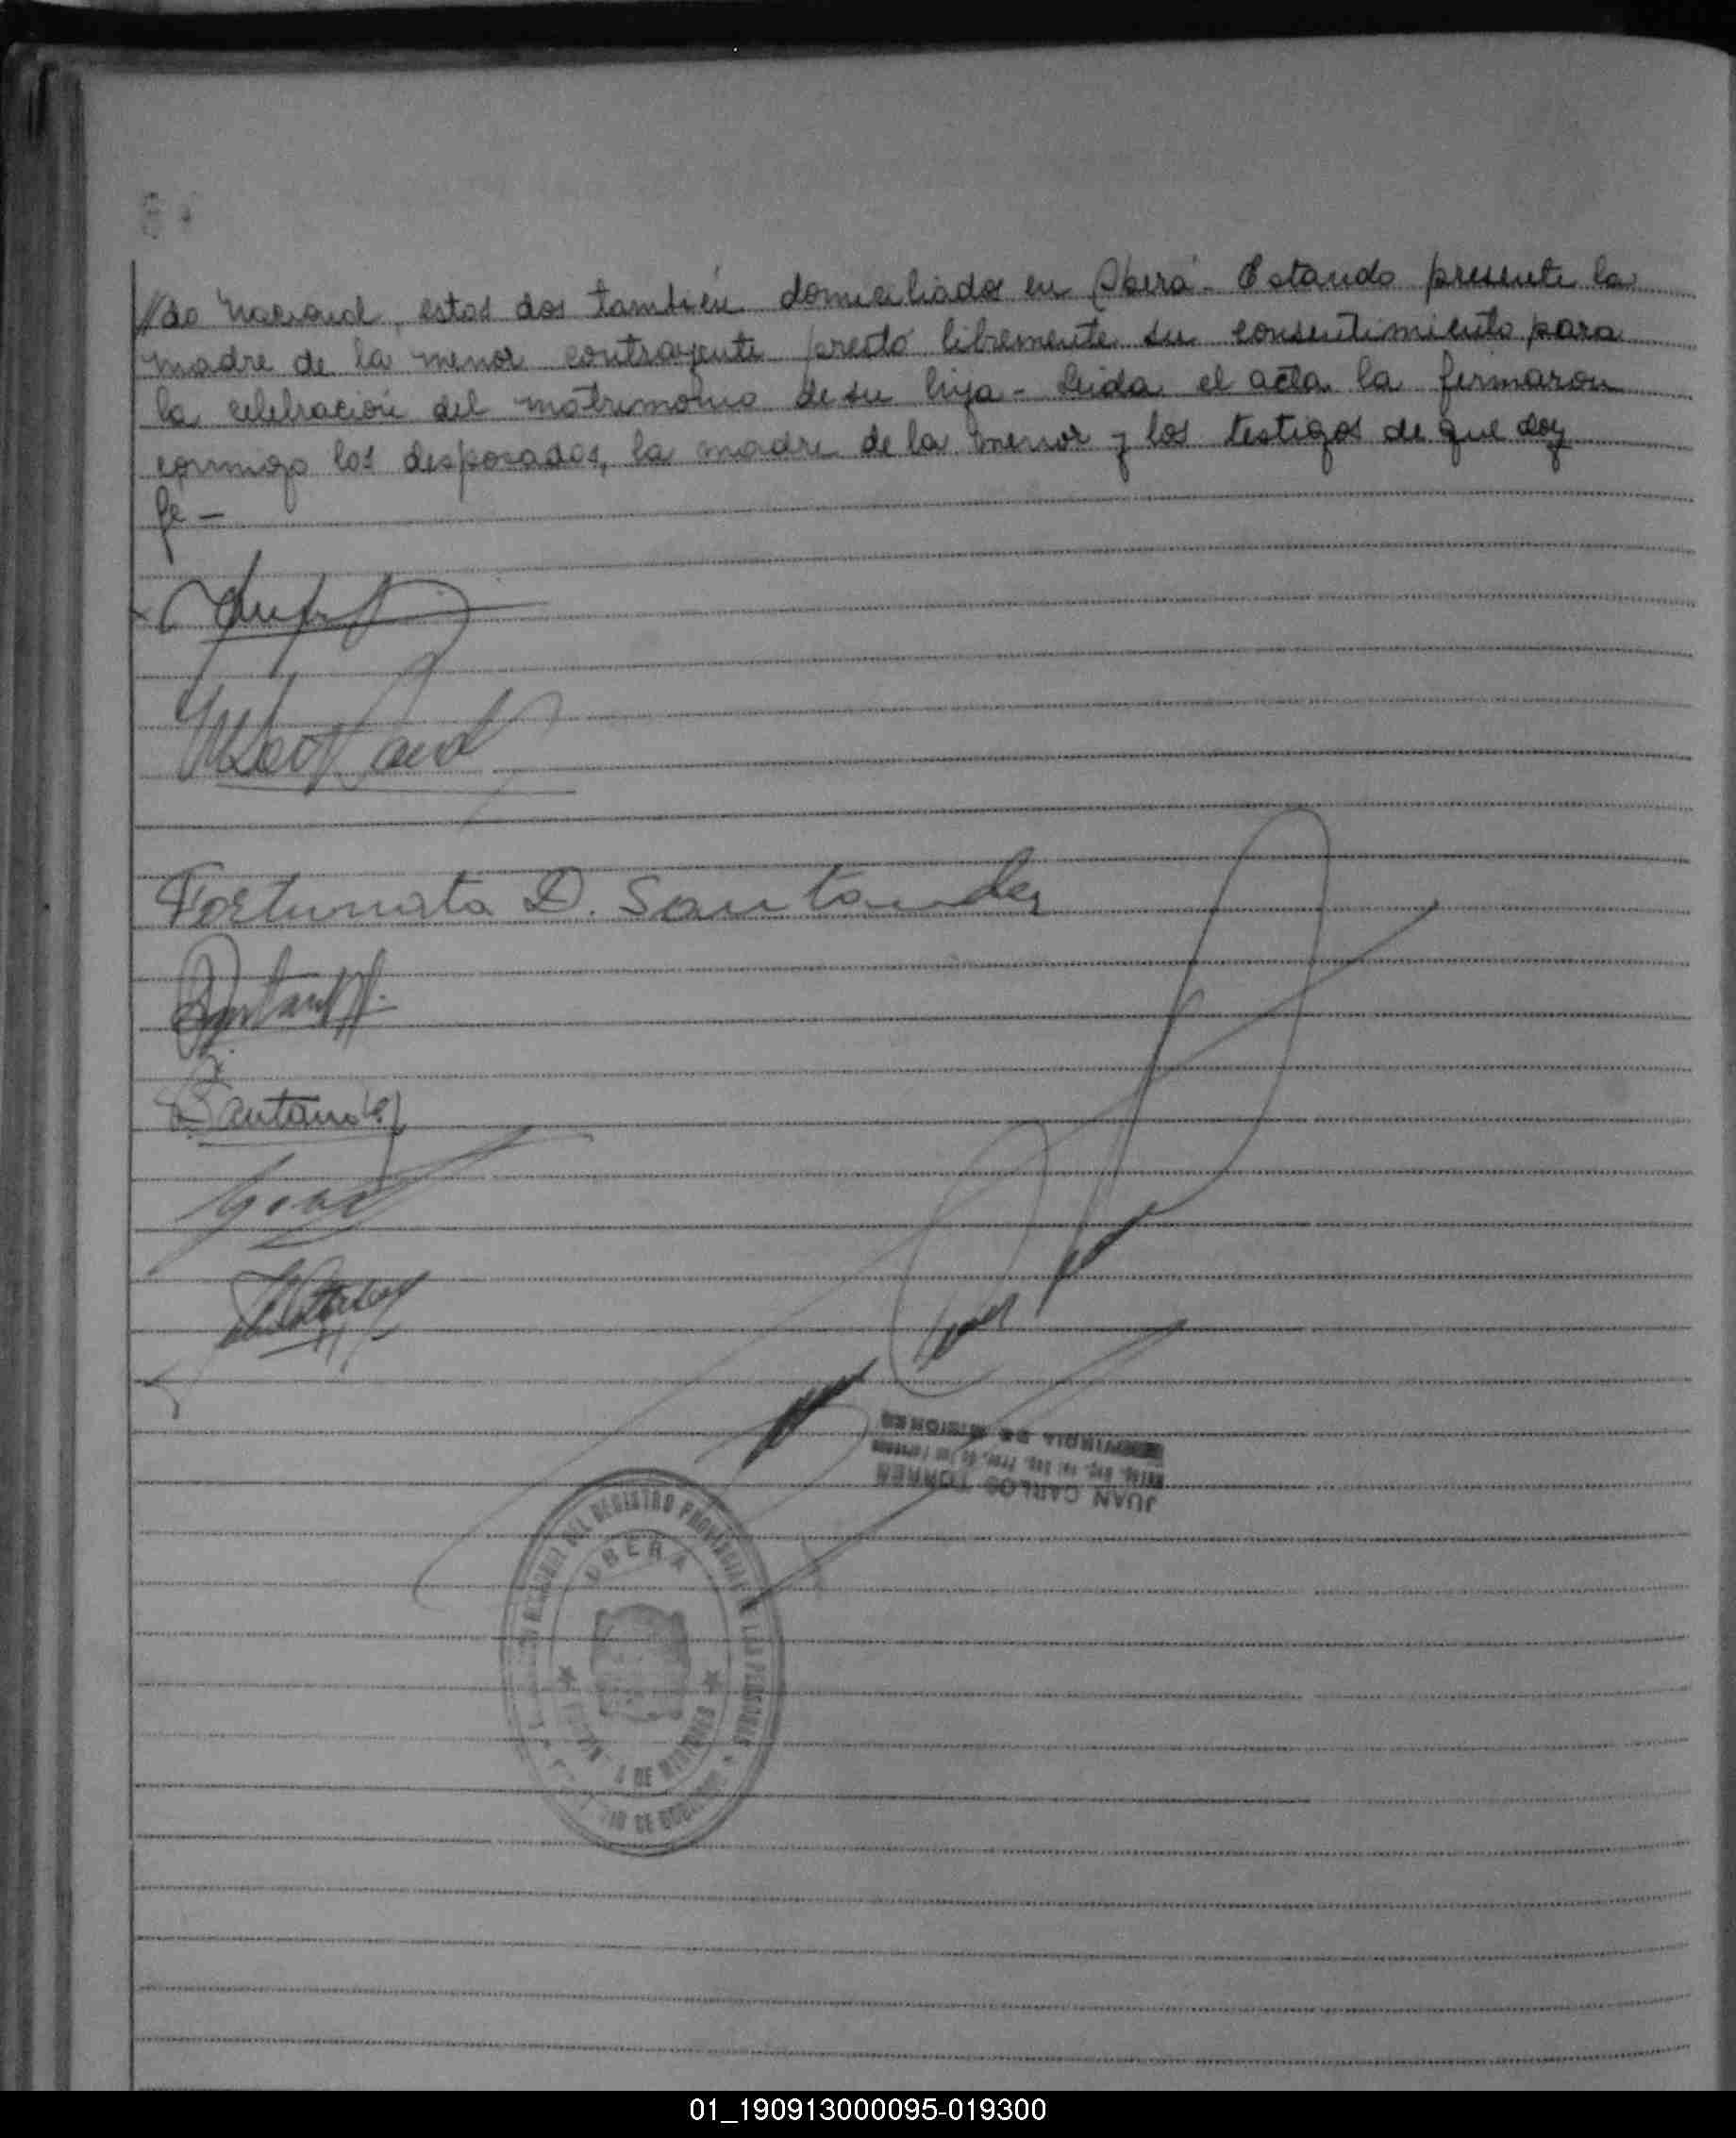 //do Nacional, estos dos también domiciliados en Oberá - Estando presente la
madre de la menor contrayente prestó libremente su consentimiento para
la celebración del matrimonio de su hija - Leida el acta la firmaron
conmigo los desposados, la madre de la menor y los testigos de que doy
fe -
Fortunata D. Santander
Santander
JUAN CARLOS TORRES
PROVINCIA DE MISIONES
DEL REGISTRO PROVINCIAL DE LAS PERSONAS
OBERA
DE MISIONES
01_190913000095-019300